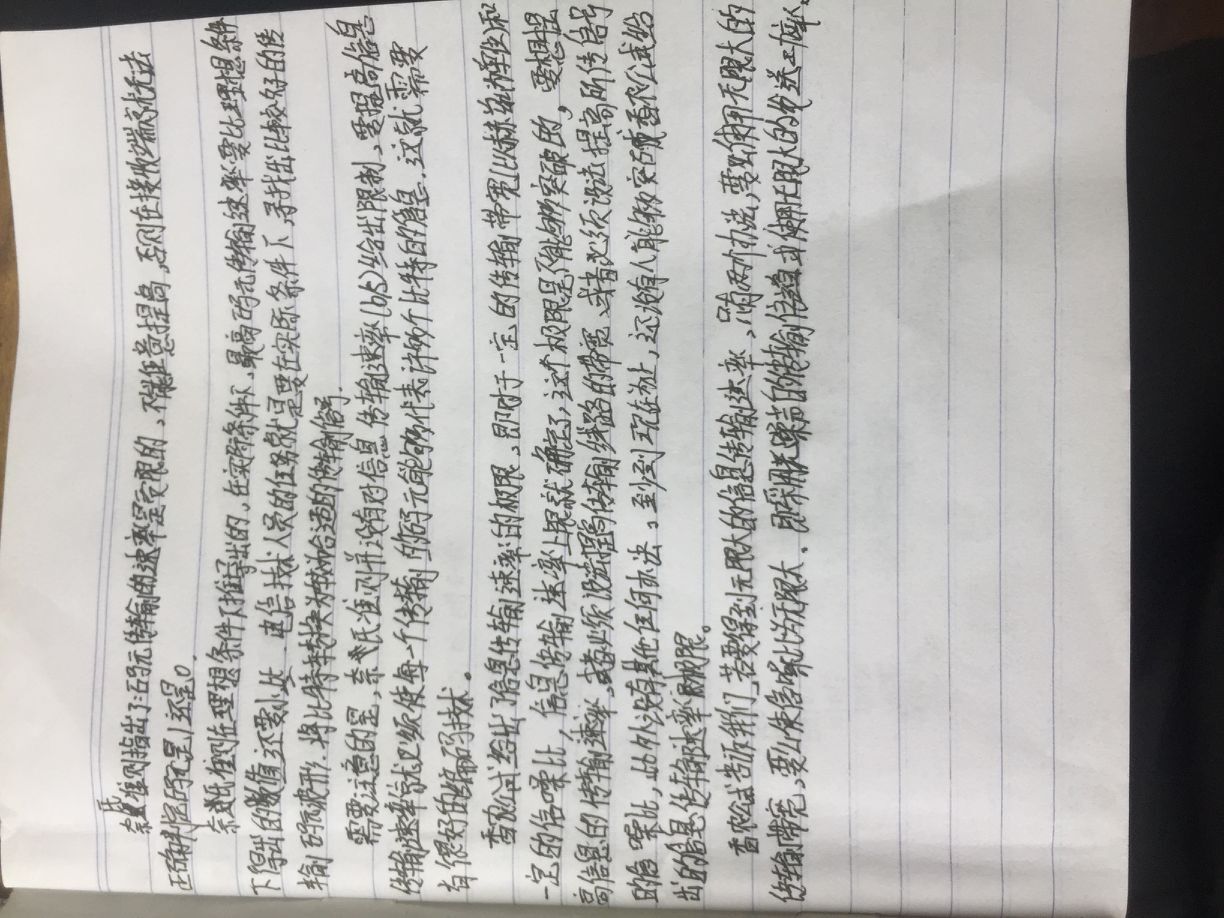 奈氏准则指出了:码元传输的速率是受限的,不能任意提高,否则在接收端就无法
正确判定码元是1还是0.
奈氏准则在理想条件下推导出的,在实际条件下,最高码元传输速率要比理想条件
下得出的数值还要小些.电信技术人员的任务就是要在实际条件下,寻找出比较好的传
输码元波形,将比特转换为较为合适的传输信号.
需要注意的是,奈氏准则并没有对信息传输速率(b/s)给出限制,要提高信息
传输速率就必须使每一个传输的码元能够代表许多个比特的信息.这就需要
有很好的编码技术。
香农公式给出了信息传输速率的极限,即对于一定的传输带宽(以赫兹为单位)和
一定的信噪比,信息传输速率上限就确定了,这个极限是不能够突破的,要想提
高信息的传输速率,或者必须设法提高传输线路的带宽,或者必须设法提高所传信号
的信噪比,此外没有其他任何办法。至少到现在为止,还没有人能够突破香农公式给
出的信息传输速率的极限。
香农公式告诉我们,若要得到无限大的信息传输速率,只有两个办法,要么使用无限大的
传输带宽,要么使信噪比为无限大.即采用无噪声的传输信道或使用无限大的发送功率.